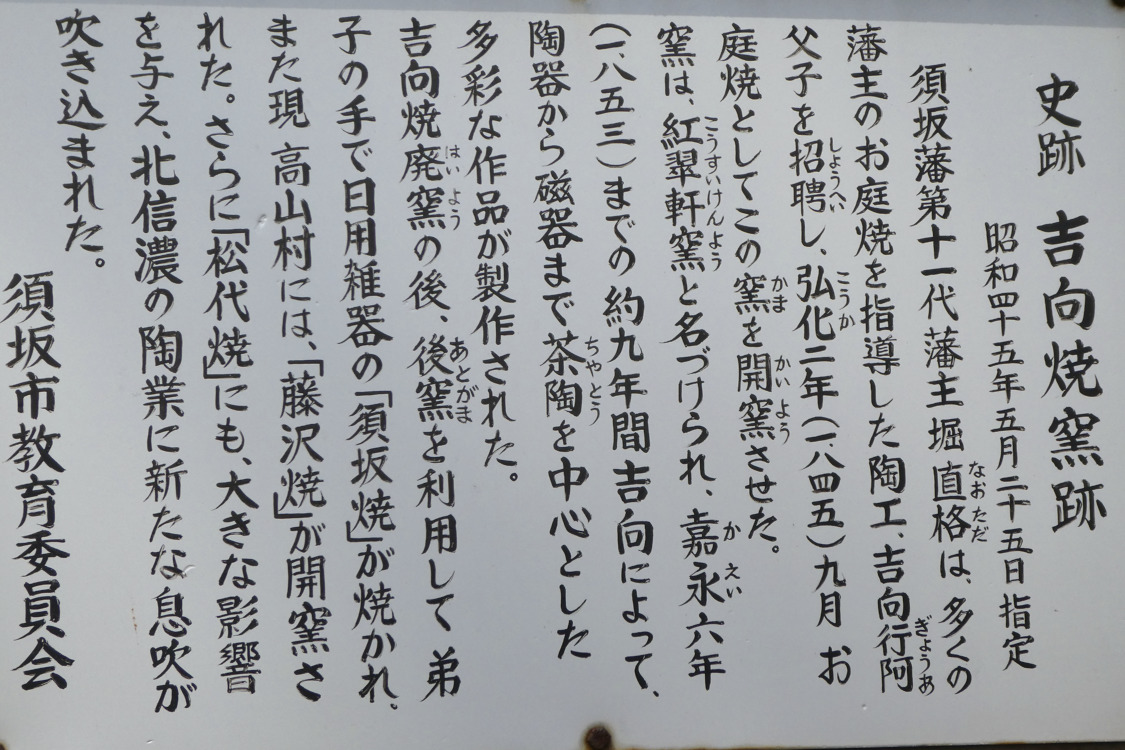 史跡 吉向焼窯跡
昭和四十五年五月二十五日指定
須坂藩第十一代藩主堀直格は、多くの
藩主のお庭焼を指導した陶工、吉向行阿
父子を招聘し、弘化二年(一八四五)九月 お
庭焼としてこの窯を開窯させた。
窯は、紅翠軒窯と名づけられ、嘉永六年
(一八五三)までの約九年間吉向によって、
陶器から磁器まで茶陶を中心とした
多彩な作品が製作された。
吉向焼廃窯の後、後窯を利用して 弟
子の手で日用雑器の「須坂焼」が焼かれ、
また現 高山村には、「藤沢焼」が開窯さ
れた。さらに「松代焼」にも、大きな影響
を与え、北信濃の陶業に新たな息吹が
吹き込まれた。
須坂市教育委員会
なおただ
ぎょうあ
しょうへい
こうか
かま
かいよう
こうすいけんよう
かえい
ちゃとう
はいよう
あとがま